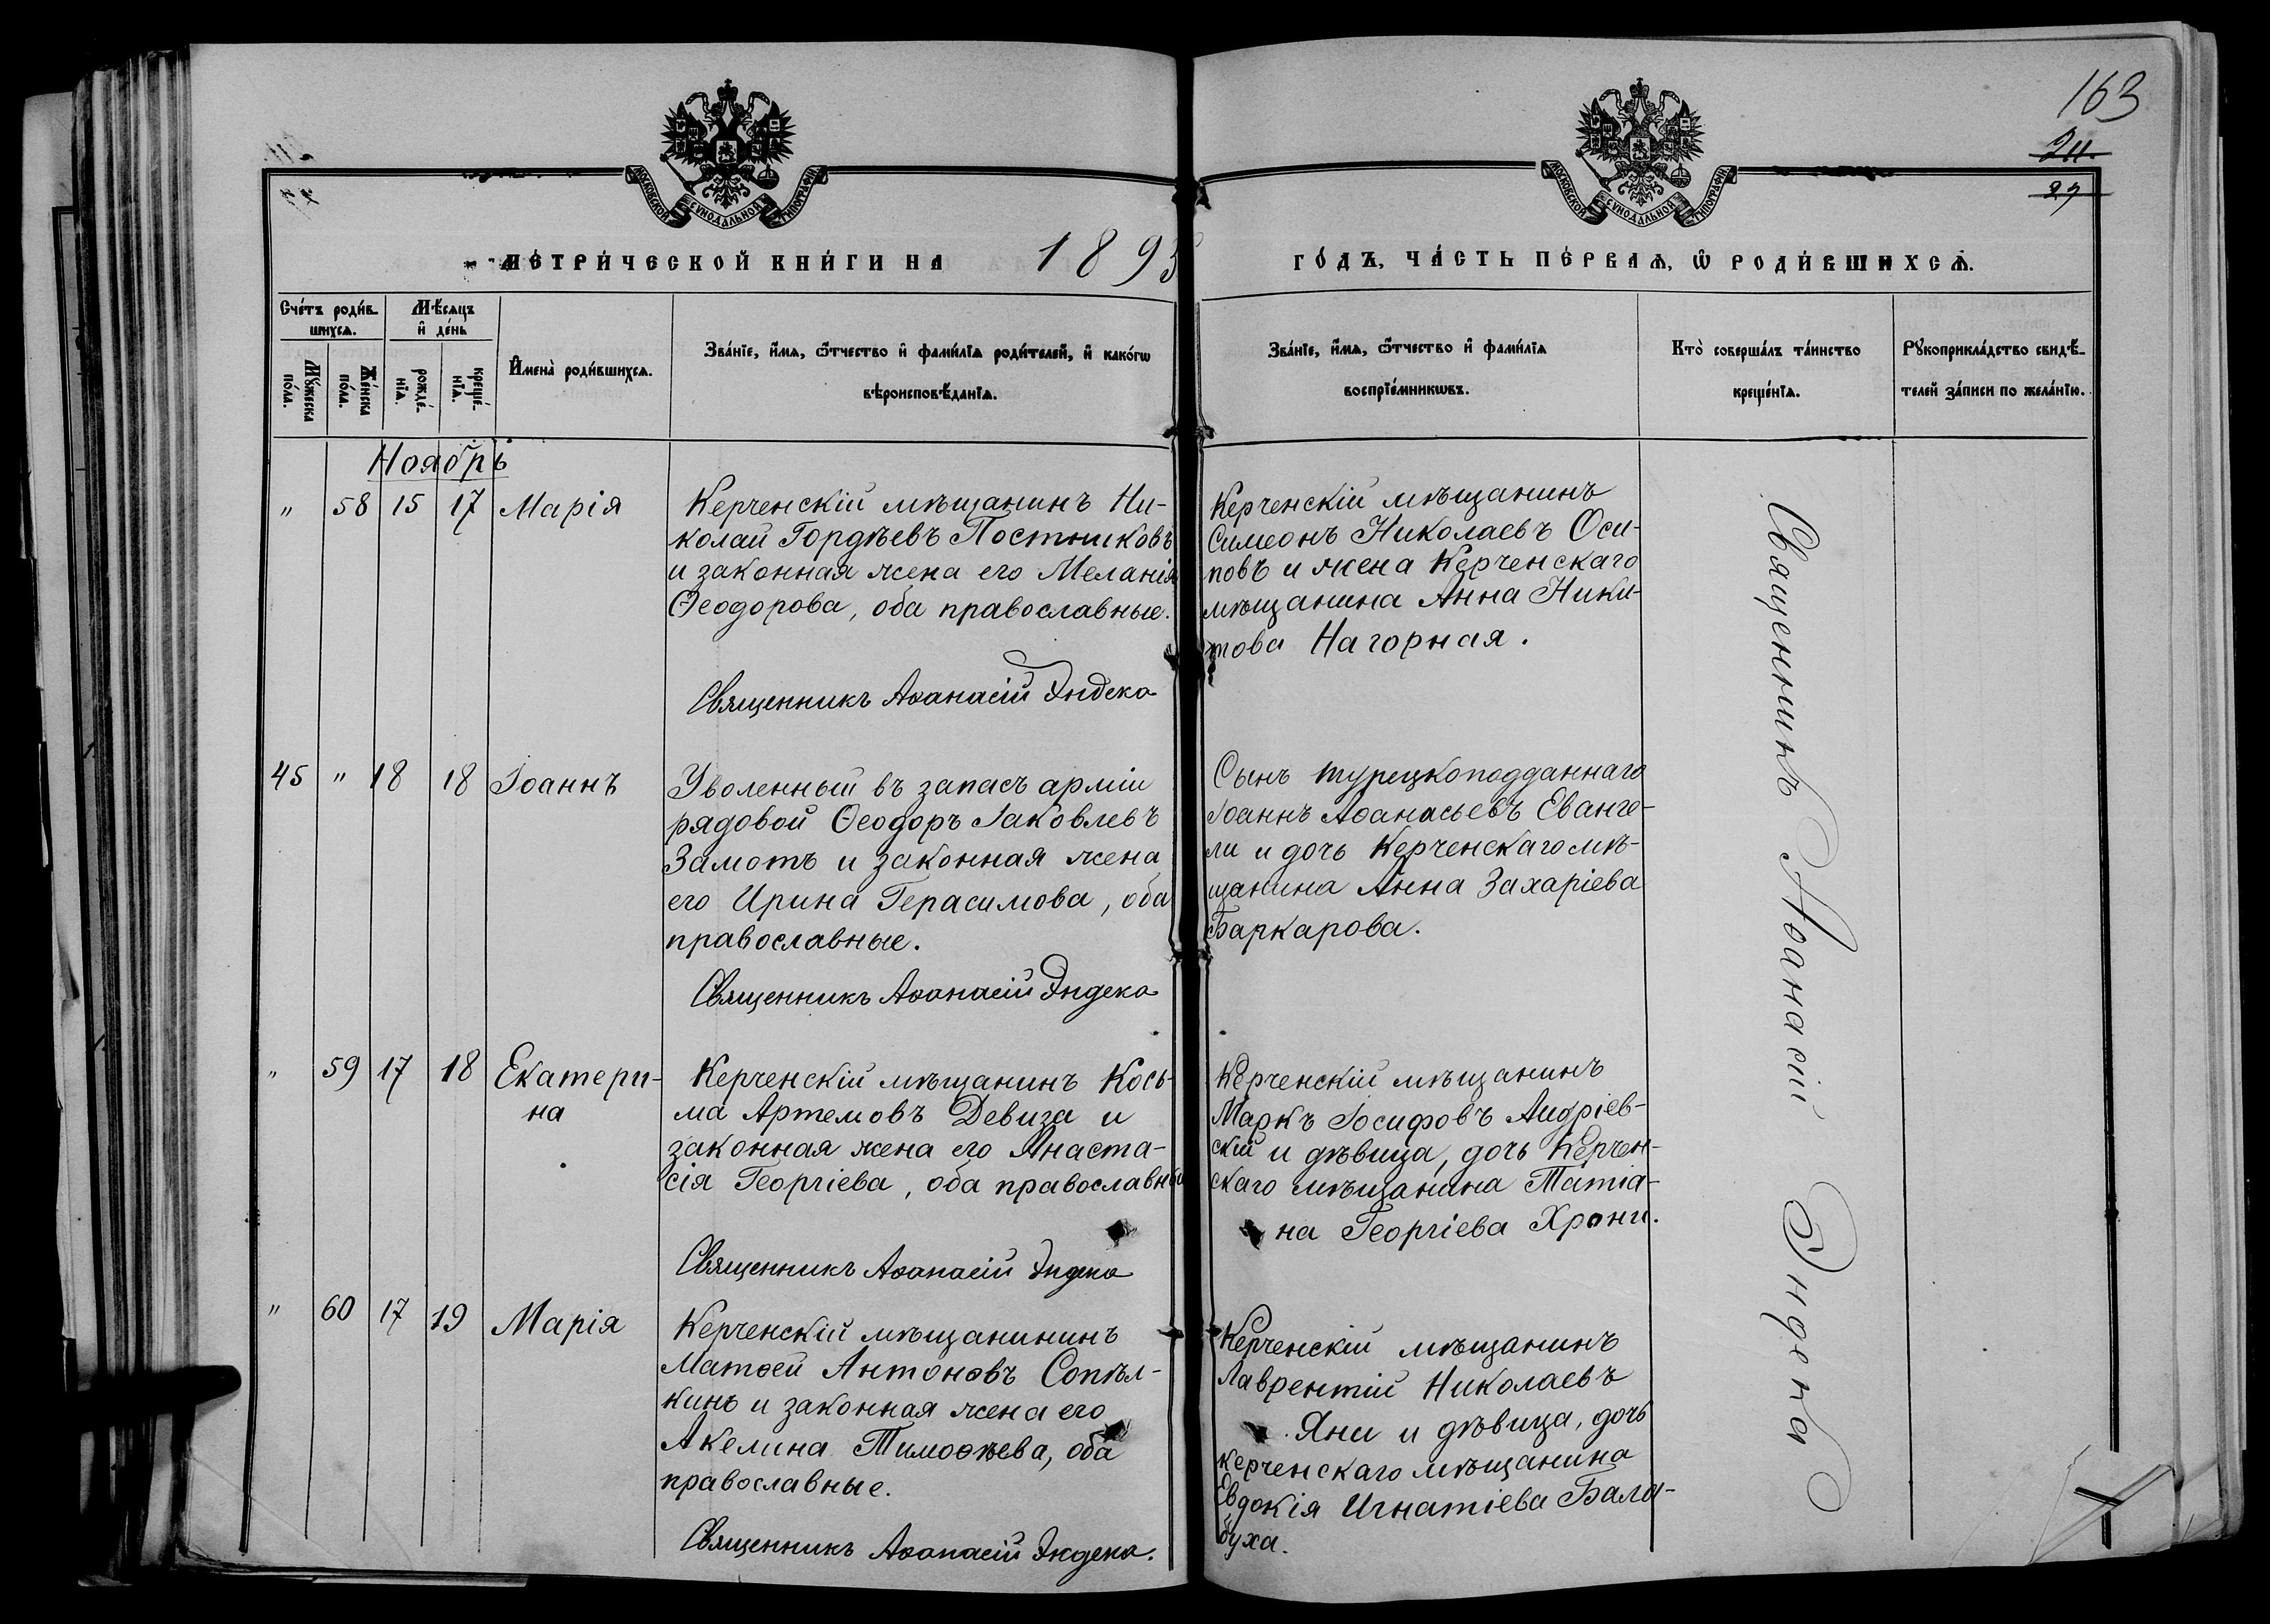 163
24.
27
МОСКОВСКОЙ СѴНОДАЛЬНОЙ ТИПОГРАФІИ
МОСКОВСКОЙ СѴНОДАЛЬНОЙ ТИПОГРАФІИ
МЕТРИ́ЧЕСКОЙ КНИ́ГИ НА 1893
ГО́ДЪ, ЧА́СТЬ ПЕ́РВАѦ, Ѿ РОДИ́ВШИХСѦ.
Сче́тъ роди́в-
шихсѧ.
Мѣ́сѧцъ
и҆ де́нь
Мꙋ́жеска
по́ла.
Же́нска
по́ла.
рожде́-
нїѧ.
креще́-
нїѧ.
И҆мена̀ роди́вшихсѧ.
Зва́нїе, и҆́мѧ, ѻ҆́тчество и҆ фами́лїѧ роди́телей, и҆ како́гѡ
вѣроисповѣ́данїѧ.
Зва́нїе, и҆́мѧ, ѻ҆́тчество и҆ фами́лїѧ
воспрїе́мникѡвъ.
Кто̀ соверша́лъ та́инство
креще́нїѧ.
Рꙋкоприкла́дство свидѣ́-
телей за́писи по жела́нїю.
Ноябрь
" 58 15 17 Марія
Керченскій мѣщанинъ Ни-
колай Гордѣевъ Постниковъ
и законная жена его Меланія
Ѳеодорова, оба православные.
Священникъ Аѳанасій Эндека
Керченскій мѣщанинъ
Симеонъ Николаевъ Оси-
повъ и жена Керченскаго
мѣщанина Анна Ники-
това Нагорная.
45 " 18 18 Іоаннъ
Уволенный въ запасъ арміи
рядовой Ѳеодоръ Іаковлевъ
Замотъ и законная жена
его Ирина Герасимова, оба
православные.
Священникъ Аѳанасій Эндека
Сынъ турецкоподданнаго
Іоаннъ Аѳанасьевъ Еванге-
ли и дочь Керченскаго мѣ-
щанина Анна Захаріева
Баркарова.
" 59 17 18 Екатери-
на
Керченскій мѣщанинъ Кось-
ма Артемовъ Девиза и
законная жена его Анаста-
сія Георгіева, оба православны
Священникъ Аѳанасій Эндека
Керченскій мѣщанинъ
Маркъ Іосифовъ Андріев-
скій и дѣвица, дочь Керчен-
скаго мѣщанина Татіа-
на Георгіева Хрони.
" 60 17 19 Марія
Керченскій мѣщанининъ
Матѳей Антоновъ Сопѣл-
кинъ и законная жена его
Акелина Тимоѳѣева, оба
православные.
Священникъ Аѳанасій Эндека.
Керченскій мѣщанинъ
Лаврентій Николаевъ
Яни и дѣвица, дочь
керченскаго мѣщанина
Евдокія Игнатіева Бала-
буха.
Священникъ Аѳанасій Эндека